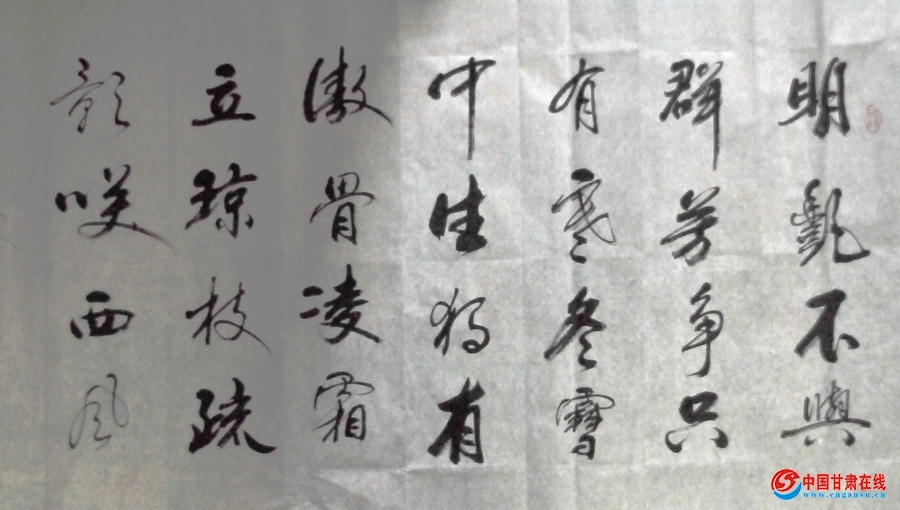 明艷不與
群芳争只
有寒冬雪
中生独有
傲骨凌霜
立琼枝疏
影咲西风
中国甘肃在线
www.cngansu.cn